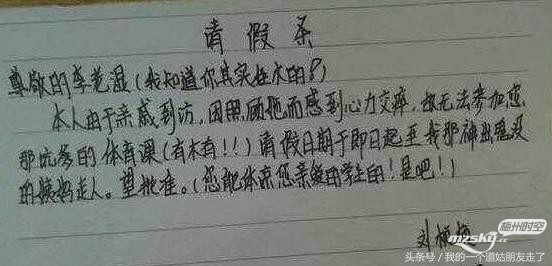 请假条
尊敬的李老湿(我知道你其实在木的?)
本人由于亲戚到访,因照顾她而感到心力交瘁,故无法参加您
那坑爹的体育课(有木有!!)请假日期于即日起至我那神出鬼没
的姨妈走人。望批准。(您能体谅您亲爱的学生的!是吧!)
刘
梅州时空
mzsky.cc
头条号/我的一个道姑朋友走了